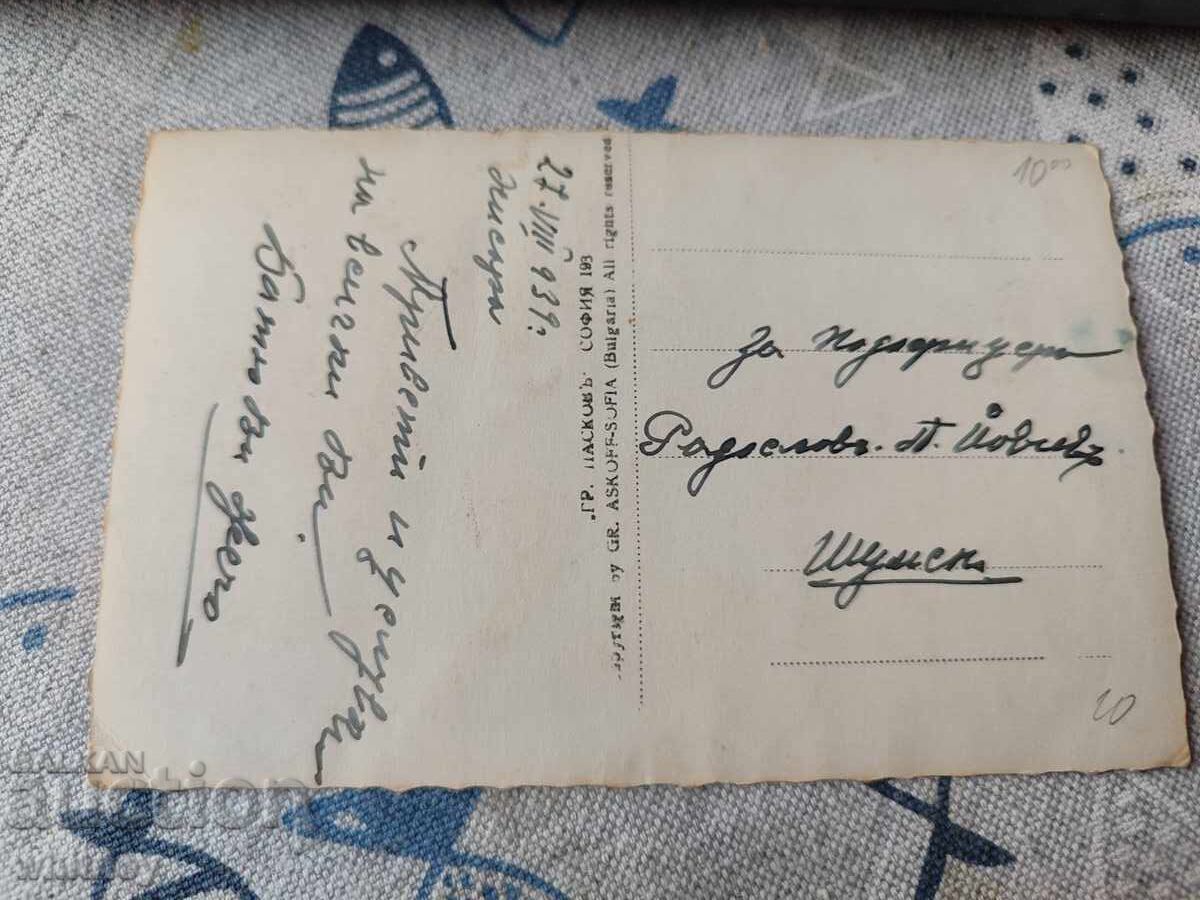 27.VIII 939г.
Приветъ и целувки
на всички ви
Батю ви Жечо
„ГР. ПАСКОВЪ“ СОФИЯ 193
by GR. ASKOFF-SOFIA (Bulgaria) All rights reserved
10 00
За подофицеръ
Радославъ П. Йовчевъ
Шуменъ
20
BALKAN
auction